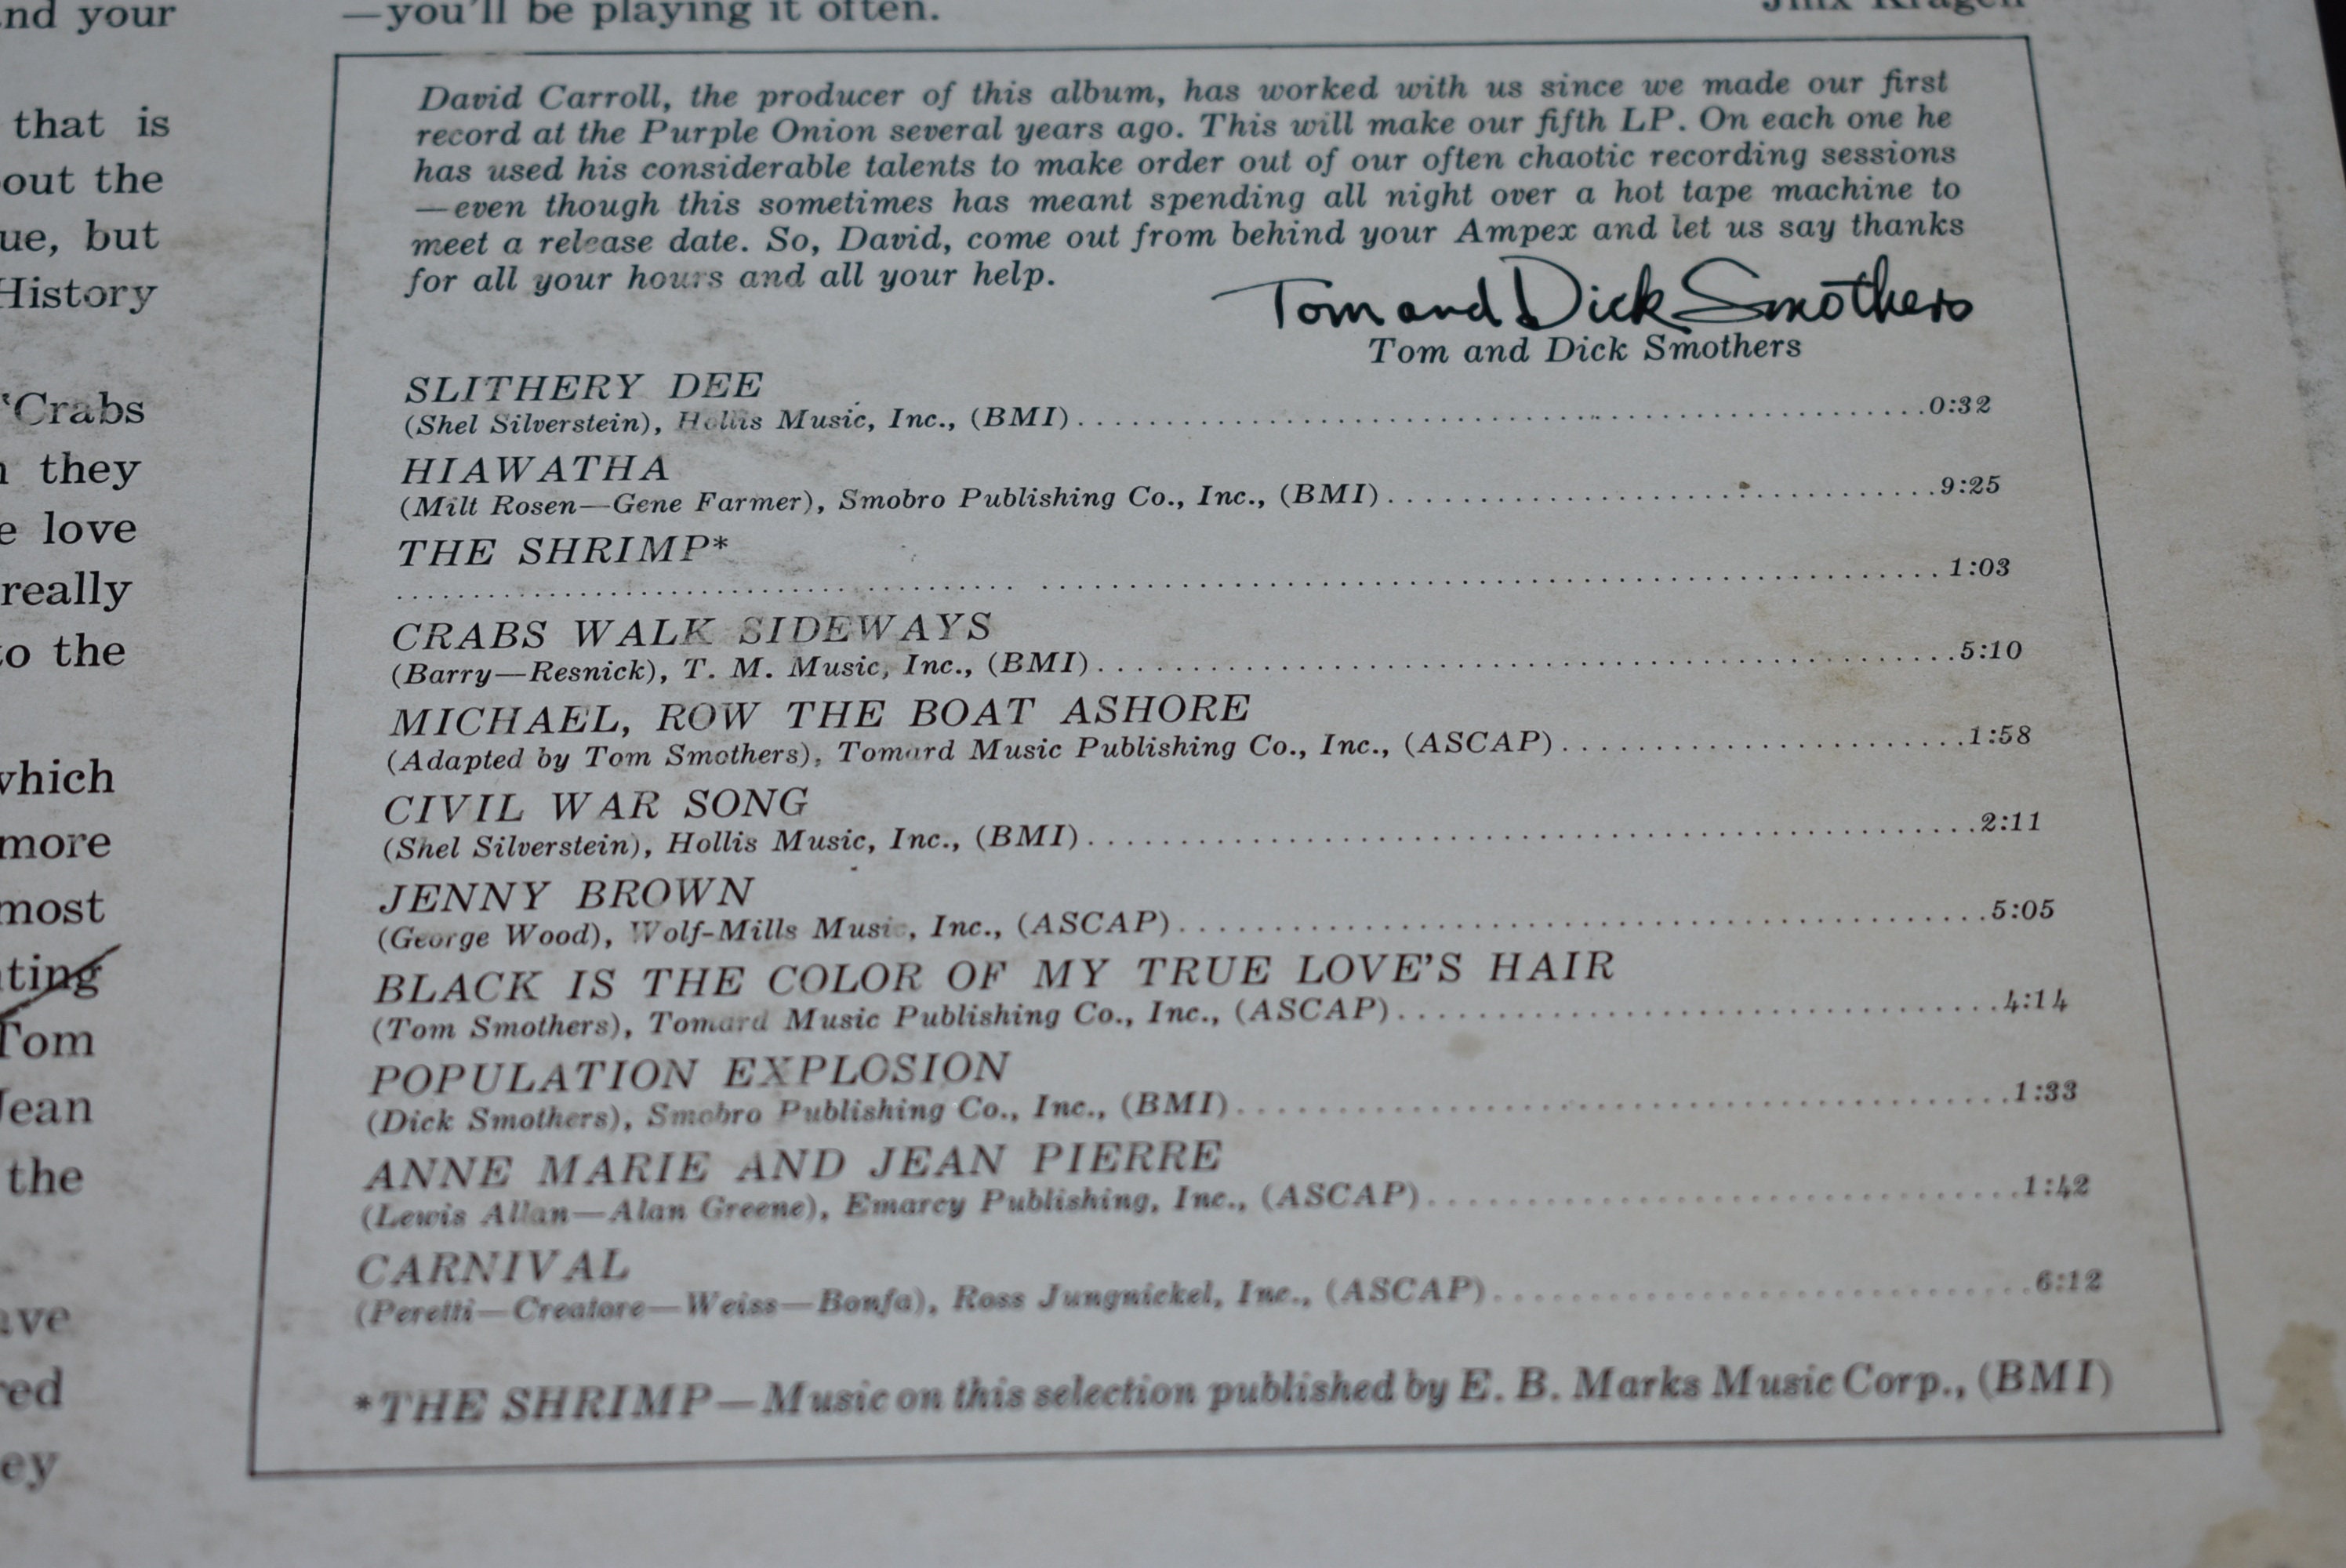 nd your
that is
out the
ue, but
History
"Crabs
they
e love
really
to the
which
more
most
ting
Tom
Jean
the
ave
red
ey
—you'll be playing it often.
Jinx Kragen
David Carroll, the producer of this album, has worked with us since we made our first
record at the Purple Onion several years ago. This will make our fifth LP. On each one he
has used his considerable talents to make order out of our often chaotic recording sessions
—even though this sometimes has meant spending all night over a hot tape machine to
meet a release date. So, David, come out from behind your Ampex and let us say thanks
for all your hours and all your help.
Tom and Dick Smothers
Tom and Dick Smothers
SLITHERY DEE
(Shel Silverstein), Hollis Music, Inc., (BMI)..........0:32
HIAWATHA
(Milt Rosen—Gene Farmer), Smobro Publishing Co., Inc., (BMI)..........9:25
THE SHRIMP*
..........1:03
CRABS WALK SIDEWAYS
(Barry—Resnick), T. M. Music, Inc., (BMI)..........5:10
MICHAEL, ROW THE BOAT ASHORE
(Adapted by Tom Smothers), Tomard Music Publishing Co., Inc., (ASCAP)..........1:58
CIVIL WAR SONG
(Shel Silverstein), Hollis Music, Inc., (BMI)..........2:11
JENNY BROWN
(George Wood), Wolf-Mills Music, Inc., (ASCAP)..........5:05
BLACK IS THE COLOR OF MY TRUE LOVE'S HAIR
(Tom Smothers), Tomard Music Publishing Co., Inc., (ASCAP)..........4:14
POPULATION EXPLOSION
(Dick Smothers), Smobro Publishing Co., Inc., (BMI)..........1:33
ANNE MARIE AND JEAN PIERRE
(Lewis Allan—Alan Greene), Emarcy Publishing, Inc., (ASCAP)..........1:42
CARNIVAL
(Peretti—Creatore—Weiss—Bonfa), Ross Jungnickel, Inc., (ASCAP)..........6:12
*THE SHRIMP—Music on this selection published by E. B. Marks Music Corp., (BMI)